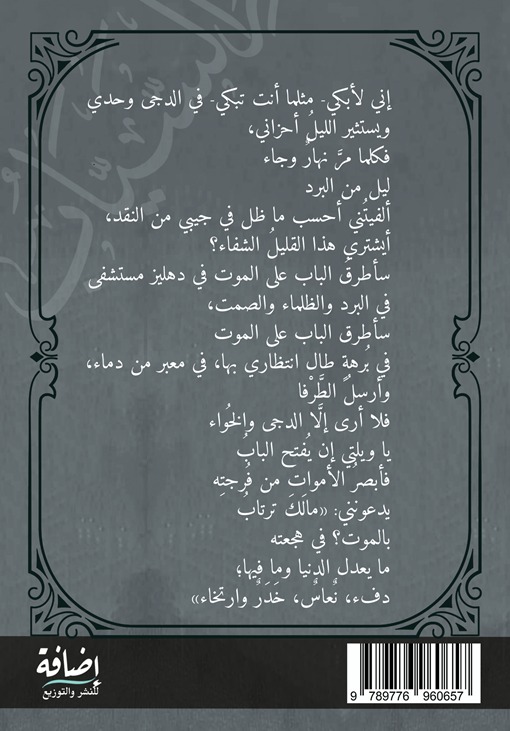 السياب
إني لأبكي- مثلما أنت تبكي- في الدجى وحدي
ويستثير الليلُ أحزاني،
فكلما مرَّ نهارٌ وجاء
ليل من البرد
ألفيتُني أحسب ما ظل في جيبي من النقد،
أيشتري هذا القليلُ الشفاء؟
سأطرقُ الباب على الموت في دهليز مستشفى
في البرد والظلماء والصمت،
سأطرق الباب على الموت
في بُرهةٍ طال انتظاري بها، في معبر من دماء،
وأرسلُ الطَّرْفا
فلا أرى إلَّا الدجى والخُواء
يا ويلتي إن يُفتح البابُ
فأبصرُ الأموات من فُرجتِه
يدعونني: «مالَكَ ترتابُ
بالموت؟ في هجعته
ما يعدل الدنيا وما فيها؛
دفء، نُعاسٌ، خَدَرٌ وارتخاء»
إضافة
للنشر والتوزيع
9 789776 960657